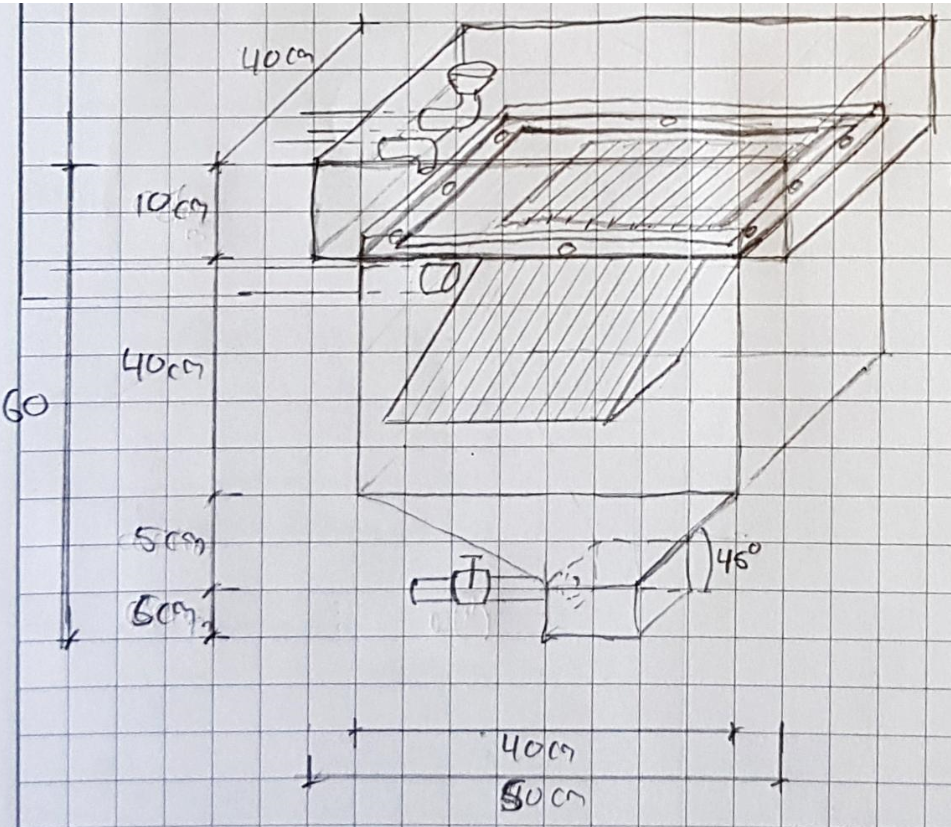 40cm
10cm
40cm
60
5cm
45°
5cm
40cm
50cm